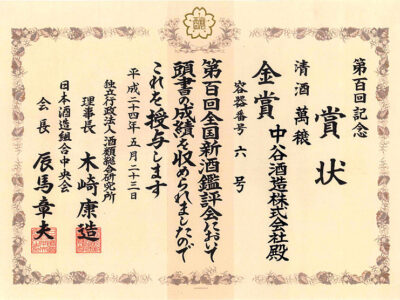 第百回記念
賞状
清酒 萬穣
中谷酒造株式会社殿
金賞
容器番号 六 号
第百回全国新酒鑑評会において
頭書の成績を収められましたので
これを授与します
平成二十四年五月二十三日
独立行政法人酒類総合研究所
理事長 木崎康造
日本酒造組合中央会
会長 辰馬章夫